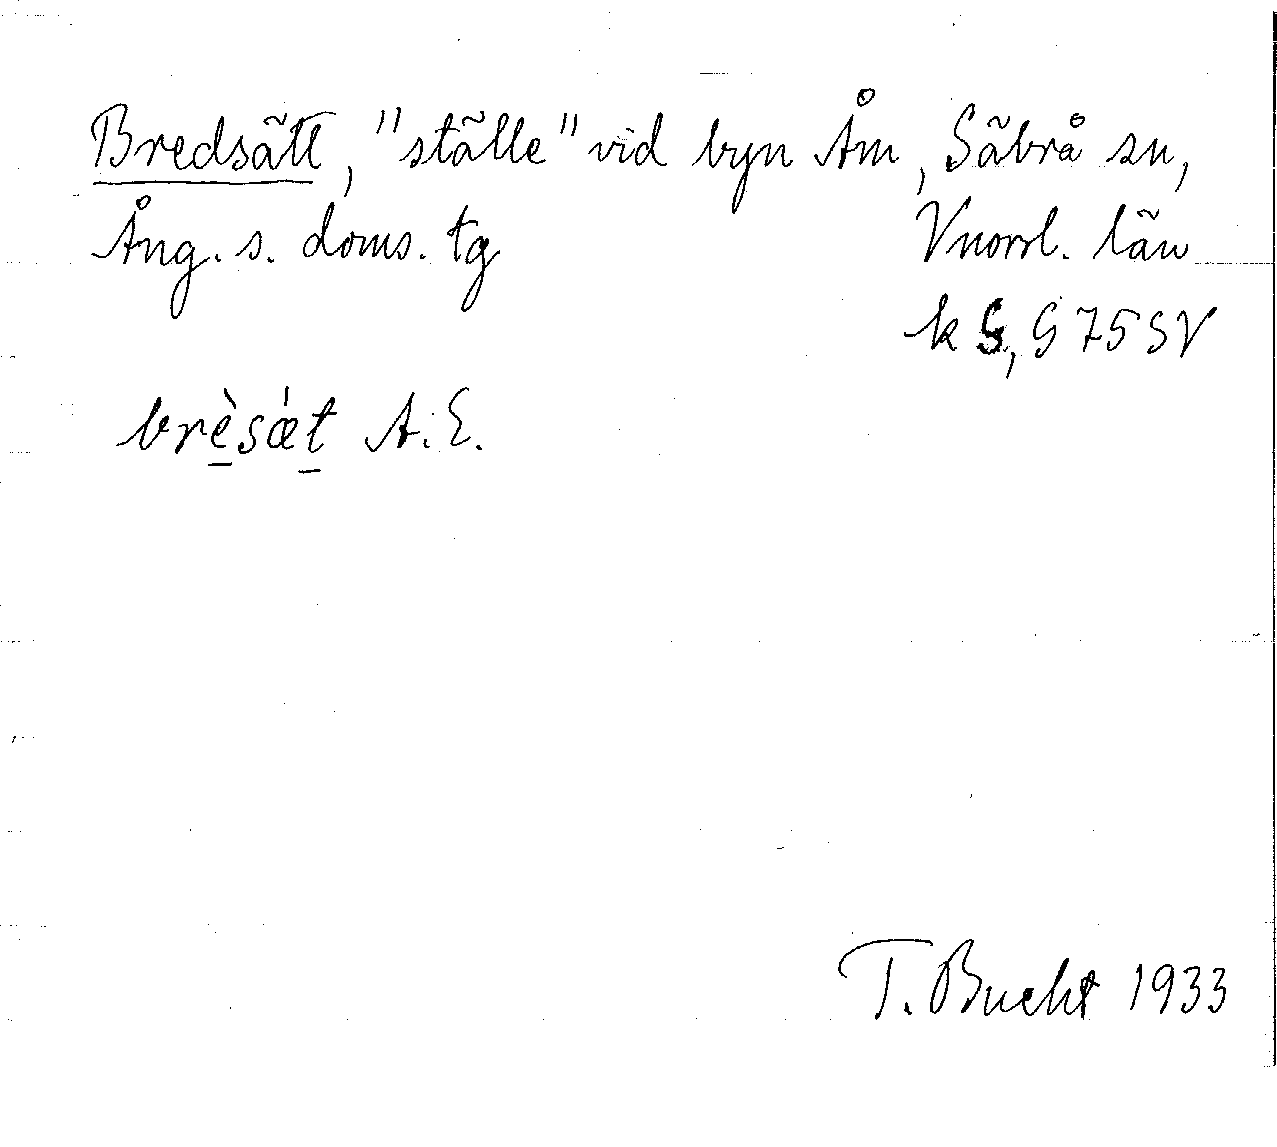 Bredsätt, "ställe" vid byn Åm, Säbrå sn,
Ång. s. doms. tg Vnorrl. län
k G, G 75 SV
brèsǽt A. E.
T. Bucht 1933